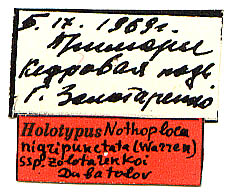 5.IX.1969г.
Приморье
Кедровая падь
Г. Золотаренко
Holotypus Nothoploca
nigripunctata (Warren)
ssp. zolotarenkoi
Dubatolov